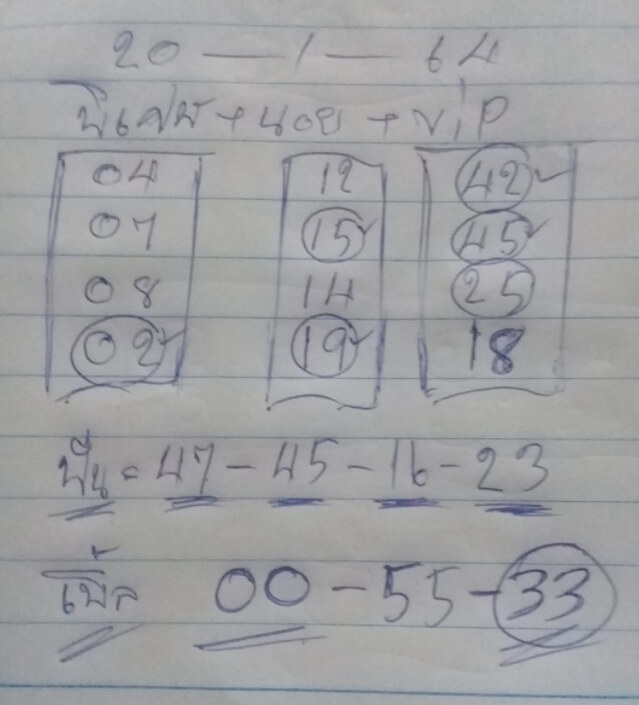 20 — 1 — 64
พิเศษ + นอย + vip
04 12 42
07 15 45
08 14 25
02 19 18
ฟัน = 47 - 45 - 16 - 23
เบิ้ล 00 - 55 - 33